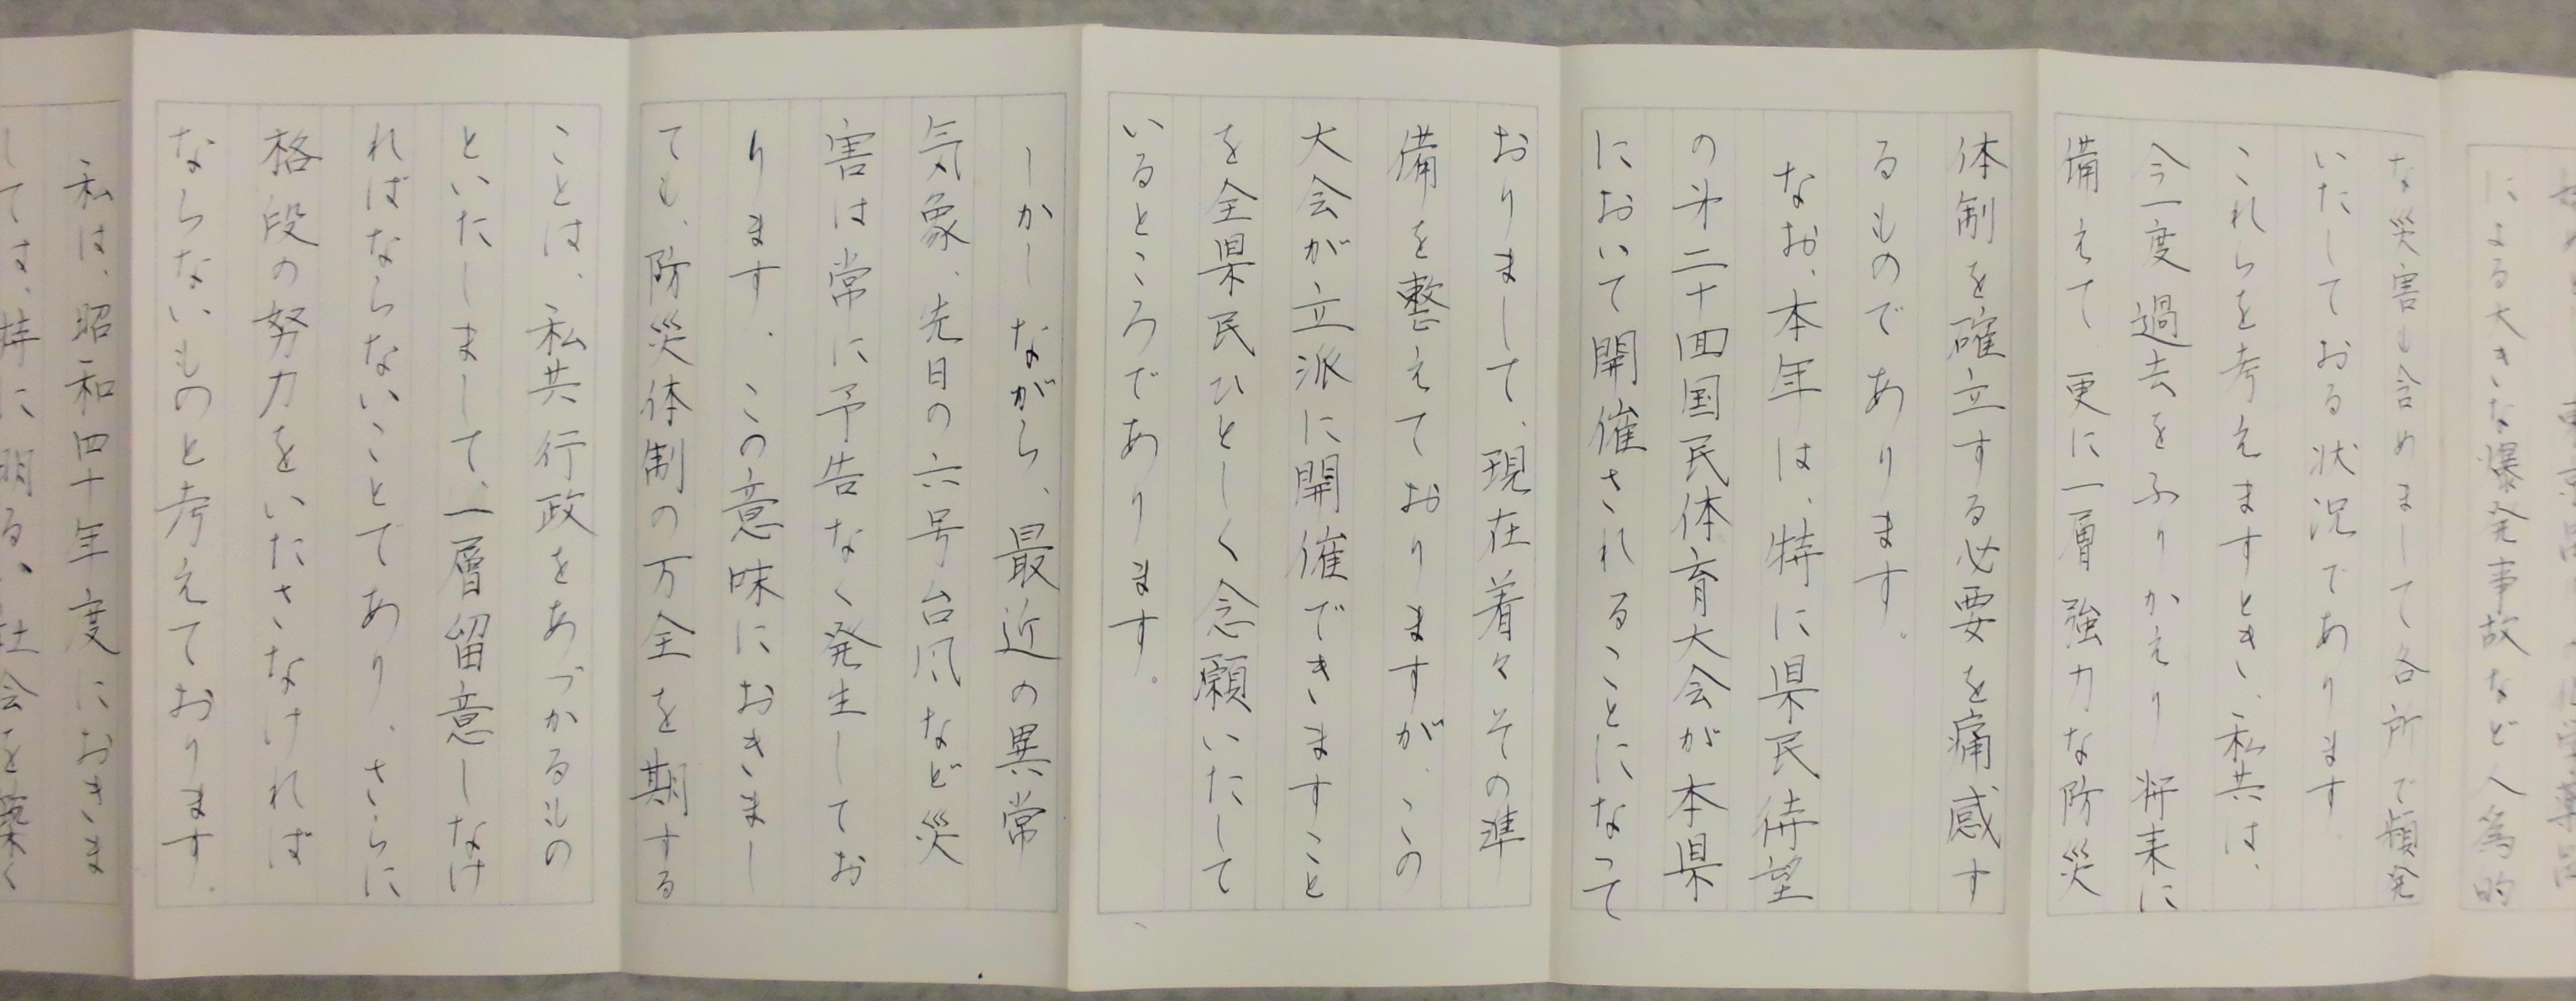 による大きな爆発事故など人為的
な災害も含めまして各所で頻発
いたしておる状況であります
これらを考えますとき、私共は、
今一度過去をふりかえり将来に
備えて更に一層強力な防災
体制を確立する必要を痛感す
るものであります。
なお、本年は、特に県民待望
の才二十四国民体育大会が本県
において開催されることになって
おりまして、現在着々その準
備を整えておりますが、この
大会が立派に開催できますこと
を全県民ひとしく念願いたして
いるところであります。
しかしながら、最近の異常
気象、先日の六号台风など災
害は常に予告なく発生してお
ります、この意味におきまし
ても、防災体制の万全を期する
ことは、私共行政をあづかるもの
といたしまして、一層留意しなけ
ればならないことであり、さらに
格段の努力をいたさなければ
ならないものと考えております。
私は、昭和四十年度におきま
しては、特に明るい社会を築く